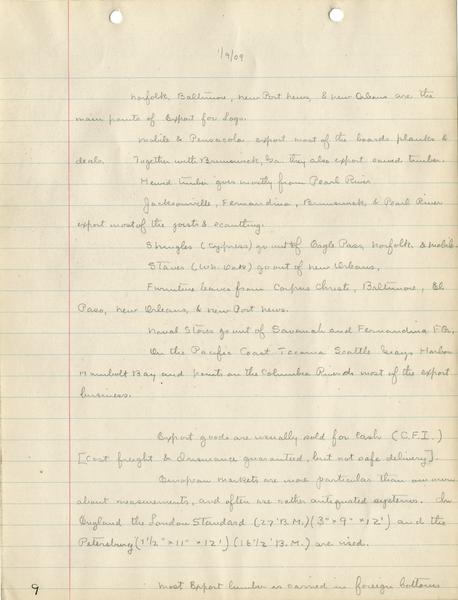 1/9/09
Norfolk, Baltimore, New Port News, & New Orleans are the
main points of Export for Logs.
Mobile & Pensacola export most of the boards planks &
deals. Together with Brunswick, Ga. they also export sawed timber.
Hewed timber goes mostly from Pearl River
Jacksonville, Fernandina, Brunswick, & Pearl River
export most of the joists & scantling.
Shingles (Cypress) go out of Eagle Pass, Norfolk & Mobile.
Staves (Wh. Oak) go out of New Orleans.
Furniture leaves from Corpus Christi, Baltimore, El
Paso, New Orleans, & New Port News.
Naval Stores go out of Savanah and Fernandina
On the Pacific Coast Tacoma Seattle Grays Harbor
Humbolt Bay and points on the Columbia River do most of the export
business.
Export goods are usually sold for cash (C.F.I.)
[Cost freight & Insurance guaranteed, but not safe delivery].
European markets are more particular than our own
about measurements, and often use rather antiquated systems. In
England the London Standard (27' B.M.) (3" x 9" x 12') and the
Petersburg (1 1/2" x 11" x 12') (16 1/2' B.M.) are used.
Most Export lumber is carried in foreign bottoms
9